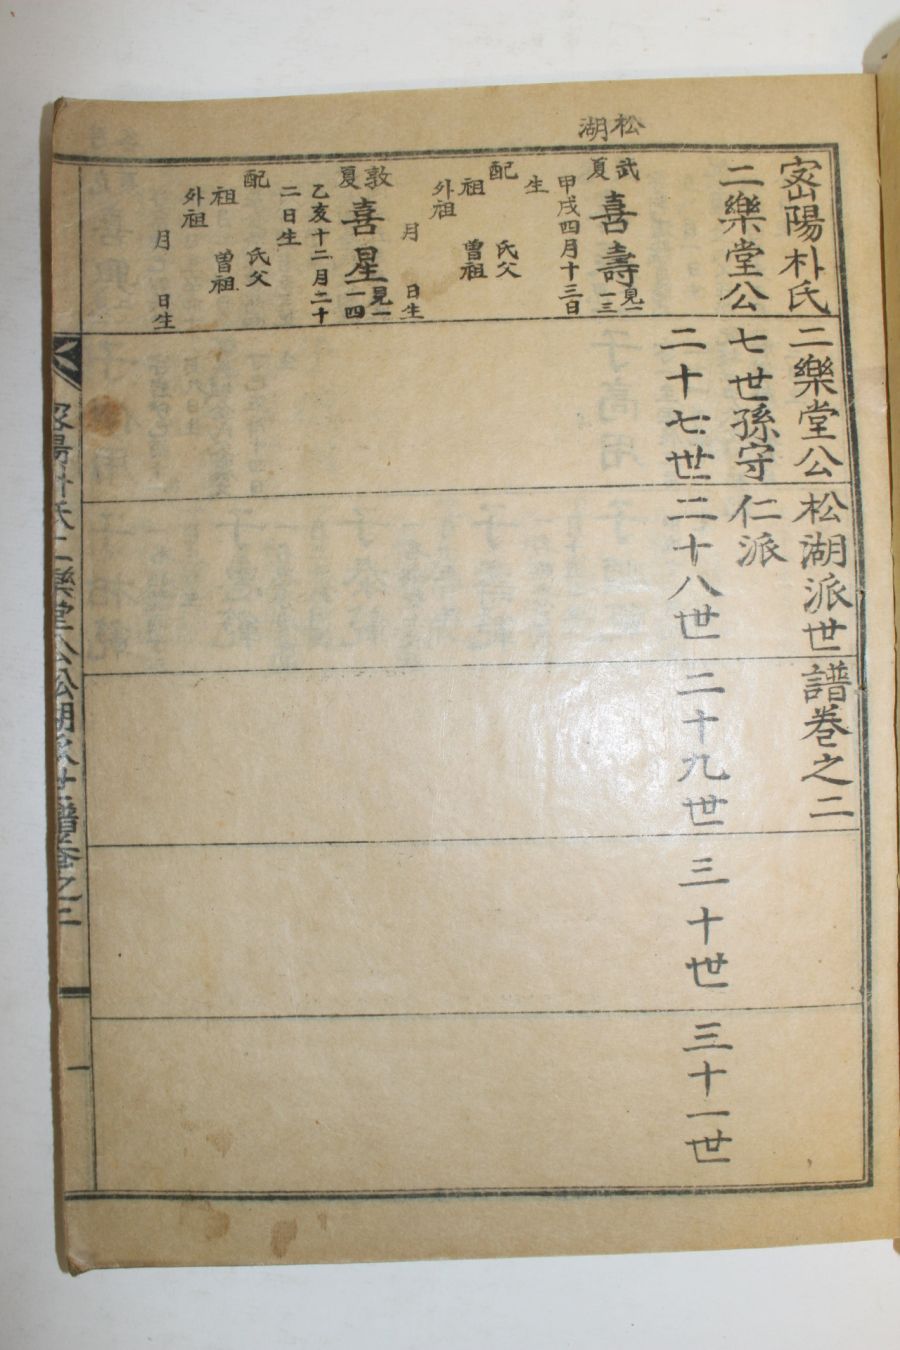 松湖
密陽朴氏二樂堂公松湖派世譜卷之二
二樂堂公七世孫守仁派
二十七世二十八世二十九世三十世三十一世
武夏
喜壽
見一一三
甲戌四月十三日
生
配 氏父
祖 曾祖
外祖
月 日生
敦夏
喜星
見一一四
乙亥十二月二十
二日生
配 氏父
祖 曾祖
外祖
月 日生
密陽朴氏二樂堂公松湖派世譜卷之二
一